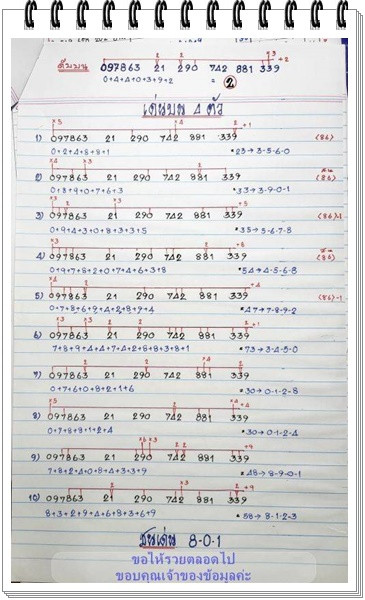 ดับบน 097863 21 290 742 881 339 +2
0+4+4+0+3+9+2 = 2
เด่นบน 4 ตัว
1) 097863 21 290 742 881 339 +1 (86)
0+2+4+8+8+1 *23→3-5-6-0
2) 097863 21 290 742 881 339 (86)
0+8+9+0+7+6+3 *33→3-9-0-1
3) 097863 21 290 742 881 339 +5 (86)-1
0+9+4+3+0+8+3+3+5 *35→5-6-7-8
4) 097863 21 290 742 881 339 +8 (86)
0+9+7+8+2+0+7+4+6+3+8 *54→4-5-6-8
5) 097863 21 290 742 881 339 +4 (86)-1
0+7+8+6+9+4+2+8+9+4 *47→7-8-9-2
6) 097863 21 290 742 881 339 +1
7+8+9+4+4+7+4+2+8+8+3+8+1 *73→3-4-5-0
7) 097863 21 290 742 881 339
0+7+6+0+8+2+1+6 *30→0-1-2-8
8) 097863 21 290 742 881 339 +4
0+7+8+8+1+2+4 *30→0-1-2-4
9) 097863 21 290 742 881 339 +9
7+8+2+4+0+8+4+3+3+9 *48→8-9-0-1
10) 097863 21 290 742 881 339 +9
8+3+2+9+4+6+8+3+6+9 *58→8-1-2-3
ชนเด่น 8-0-1
ขอให้รวยตลอดไป
ขอบคุณเจ้าของข้อมูลค่ะ